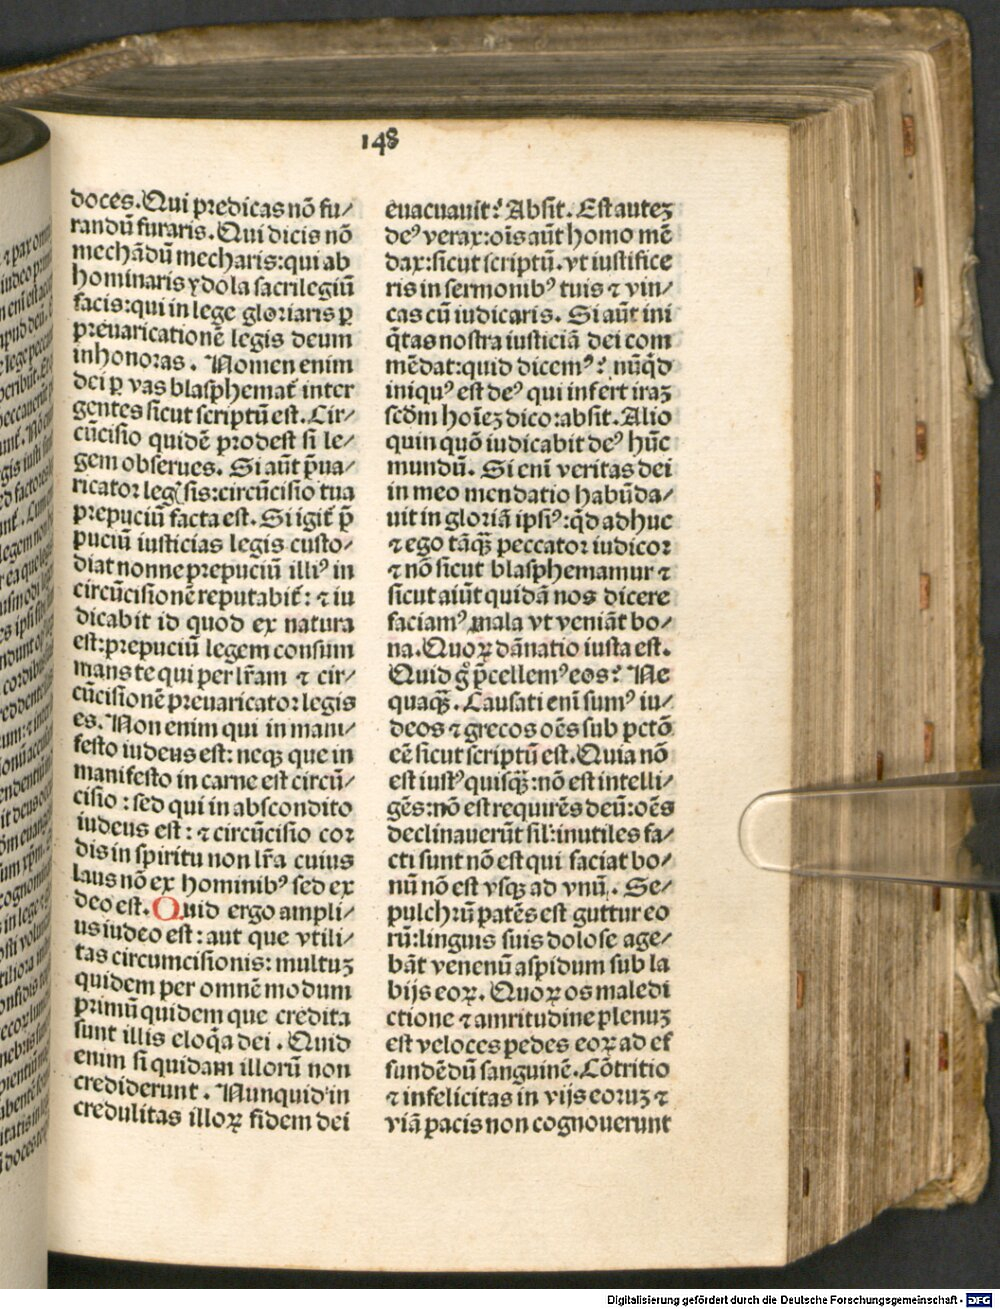 148
doces. Qui predicas nõ fu⸗
randũ furaris. Qui dicis nõ
mechãdũ mecharis: qui ab
hominaris ydola sacrilegiũ
facis: qui in lege gloriaris ꝑ
preuaricationẽ legis deum
inhonoras. Nomen enim
dei ꝑ vas blasphemat᷑ inter
gentes sicut scriptũ est. Cir⸗
cũcisio quidẽ prodest si le⸗
gem obserues. Si aũt p̃ua⸗
ricator legꝭ sis: circũcisio tua
prepuciũ facta est. Si igit᷑ p̃
puciũ iusticias legis custo⸗
diat nonne prepuciũ illiꝰ in
circũcisionẽ reputabit᷑: ⁊ iu
dicabit id quod ex natura
est: prepuciũ legem consum
mans te qui per lr̃am ⁊ cir⸗
cũcisionẽ preuaricator legis
es. Non enim qui in mani⸗
festo iudeus est: neqꝫ que in
manifesto in carne est circũ⸗
cisio: sed qui in abscondito
iudeus est: ⁊ circũcisio cor
dis in spiritu non lr̃a cuius
laus nõ ex hominibꝰ sed ex
deo est. Quid ergo ampli⸗
us iudeo est: aut que vtili⸗
tas circumcisionis: multuꝫ
quidem per omnẽ modum
primũ quidem que credita
sunt illis eloq̃a dei. Quid
enim si quidam illorũ non
crediderunt. Nunquid in
credulitas illoꝝ fidem dei
euacuauit? Absit. Est auteꝫ
deꝰ verax: oĩs aũt homo mẽ
dax: sicut scriptũ. vt iustifice
ris in sermonibꝰ tuis ⁊ vin⸗
cas cũ iudicaris. Si aũt ini
q̃tas nostra iusticiã dei com
mẽdat: quid dicemꝰ? nũq̃d
iniquꝰ est deꝰ qui infert iraꝫ
scd̃m hoĩeꝫ dico: absit. Alio
quin quõ iudicabit deꝰ hũc
mundũ. Si enĩ veritas dei
in meo mendatio habũda⸗
uit in gloriã ipsiꝰ: q̃d adhuc
⁊ ego tãqꝫ̃ peccator iudicor
⁊ nõ sicut blasphemamur ⁊
sicut aiũt quidã nos dicere
faciamꝰ mala vt veniãt bo⸗
na. Quoꝝ dãnatio iusta est.
Quid g̊ p̃cellemꝰ eos? Ne
quaqꝫ̃. Causati enĩ sumꝰ iu⸗
deos ⁊ grecos oẽs sub pctõ
eẽ sicut scriptũ est. Quia nõ
est iustꝰ quisqꝫ̃: nõ est intelli⸗
gẽs: nõ est requirẽs deũ: oẽs
declinauerũt sil̃: inutiles fa⸗
cti sunt nõ est qui faciat bo⸗
nũ nõ est vsqꝫ ad vnũ. Se⸗
pulchrũ patẽs est guttur eo
rũ: linguis suis dolose age⸗
bãt venenũ aspidum sub la
bijs eoꝝ. Quoꝝ os maledi
ctione ⁊ amritudine plenuꝫ
est veloces pedes eoꝝ ad ef
fundẽdũ sanguinẽ. Cõtritio
⁊ infelicitas in vijs eoruꝫ ⁊
viã pacis non cognouerunt
Digitalisierung gefördert durch die Deutsche Forschungsgemeinschaft - DFG